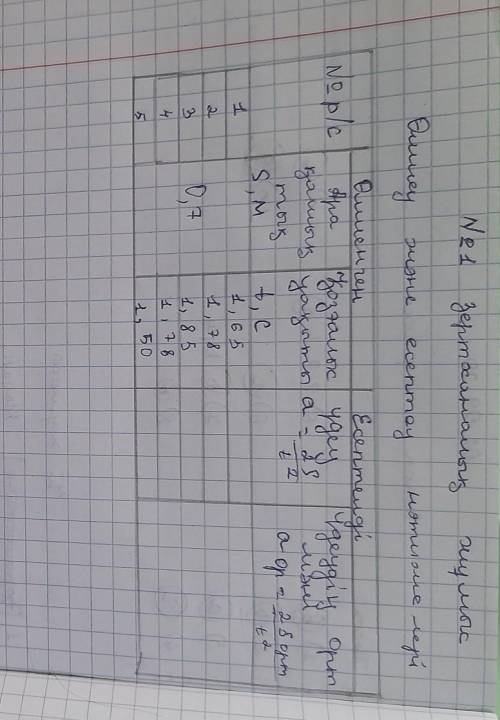 №1 зертханалық жұмыс
Өлшеу және есептеу нәтижелері
Өлшенген Есептелді
№ р/с Ара қашық тық S, м Қозғалыс уақыты t, c Үдеу a = 2S/t² Үдеудің орт мәні a ор = 2S орт/t²
1 1,65
2 1,78
3 0,7 1,85
4 1,78
5 1,50